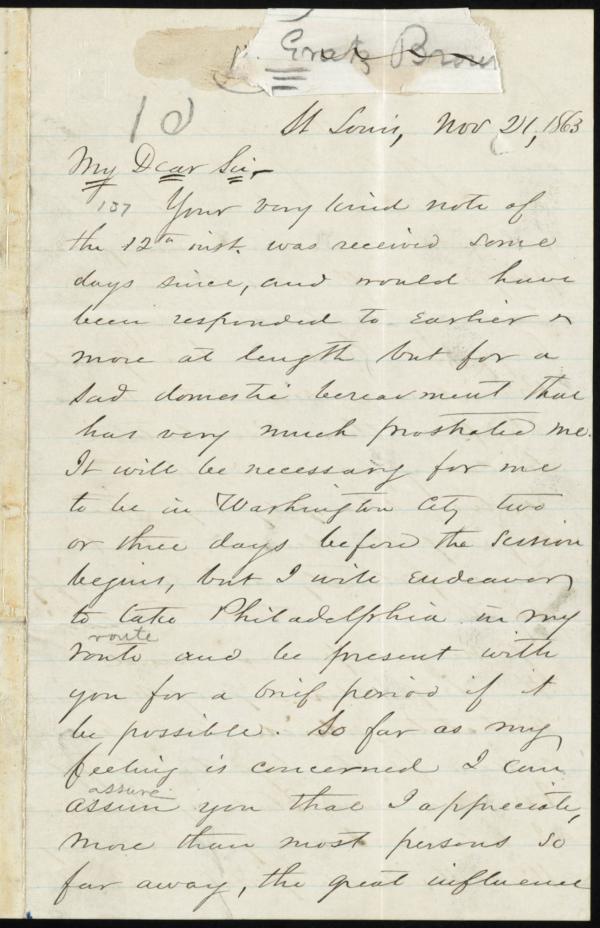 B. Gratz Brown
10
St Louis, Nov 21, 1863
My Dear Sir,
137 Your very kind note of
the 12th inst. was received some
days since, and would have
been responded to earlier &
more at length but for a
sad domestic bereavment that
has very much prostrated me.
It will be necessary for me
to be in Washington City two
or three days before the session
begins, but I will endeavor
to take Philadelphia in my
route
route and be present with
you for a brief period if it
be possible. So far as my
feeling is concerned I can
assure
assure you that I appreciate,
more than most persons so
far away, the great influence